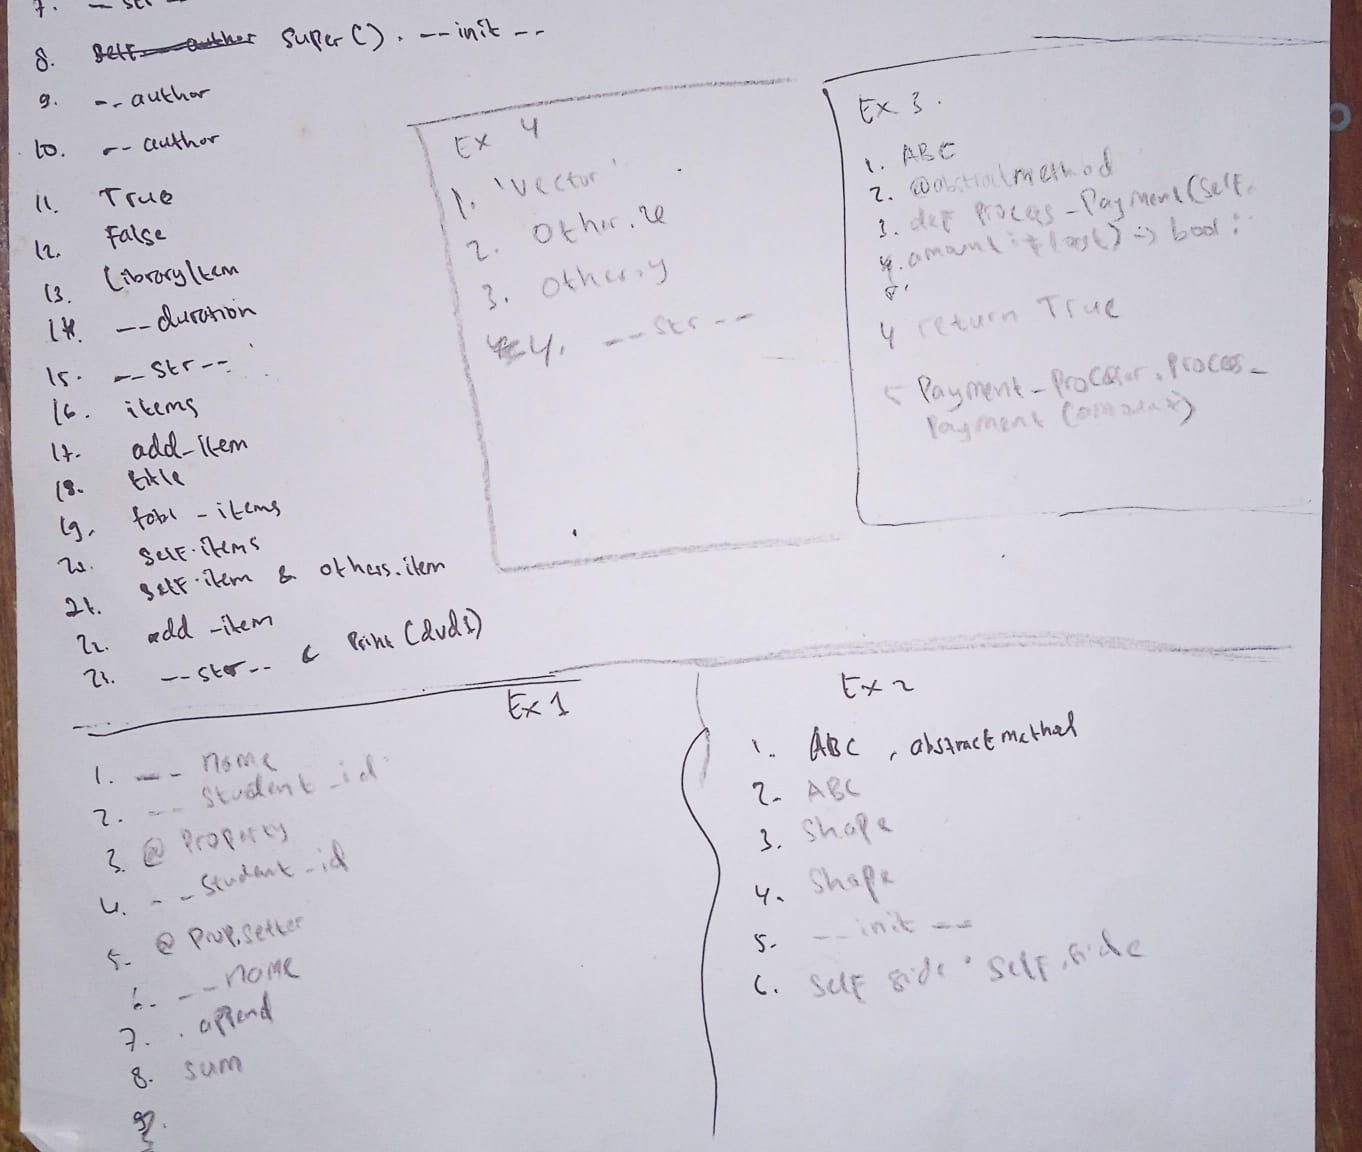 7. __ str
8. self__author super(). __init__
9. __author
10. __author
11. True
12. False
13. LibraryItem
14. __duration
15. __str__
16. items
17. add_item
18. title
19. totl_items
20. self.items
21. self.item & others.item
22. add_item
23. __str__ & Print (dvd1)
Ex 4
1. 'vector'
2. other.x
3. other.y
4. __str__
Ex 3.
1. ABC
2. @abstractmethod
3. def proces_Payment(self,
4. amount: float) -> bool:
4 return True
5 Payment_Procesor.Proces_
Payment (amount)
Ex 1
1. __name
2. __student_id
3. @Property
4. __student_id
5. @Prop.setter
6. __name
7. .append
8. sum
9.
Ex 2
1. ABC, abstractmethod
2. ABC
3. Shape
4. Shape
5. __init__
6. self side * self.side